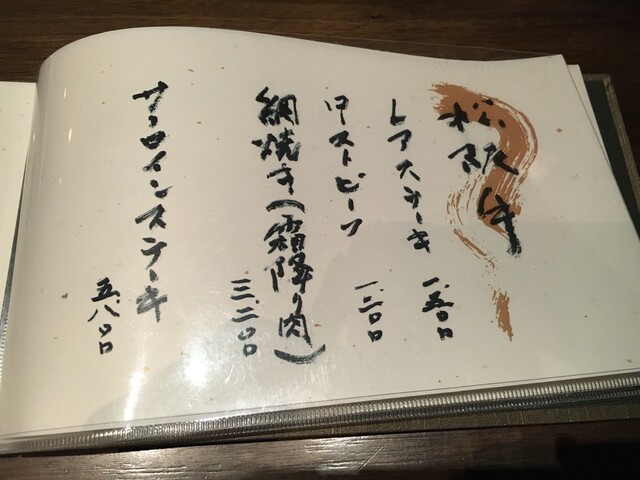 松阪牛
レアステーキ
一、五〇〇
ローストビーフ
一、二〇〇
網焼き(霜降り肉)
三、二〇〇
サーロインステーキ
五、八〇〇